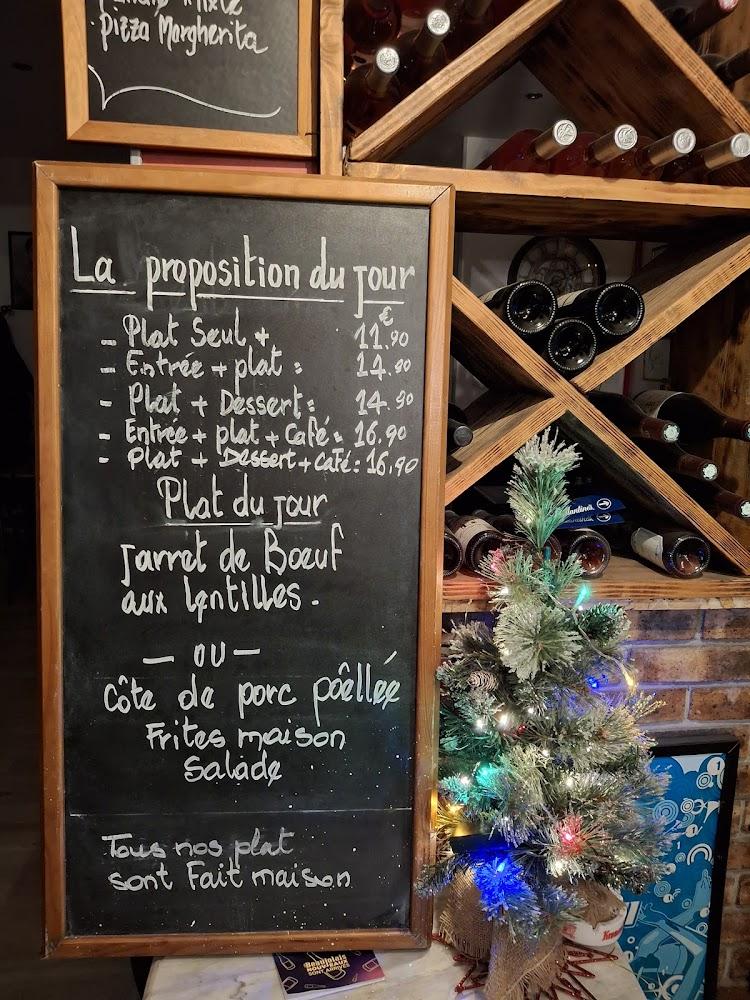 Mixte
Pizza Margherita
La proposition du jour
€
- Plat Seul + 11.90
- Entrée + plat : 14.90
- Plat + Dessert : 14.90
- Entrée + plat + Café : 16.90
- Plat + Dessert + café : 16,90
Plat du jour
Jarret de Bœuf
aux lentilles.
— OU —
Côte de porc poêlleé
Frites maison
Salade
Tous nos plat
sont Fait maison
Beaujolais
NOUVEAUX
SONT ARRIVÉS